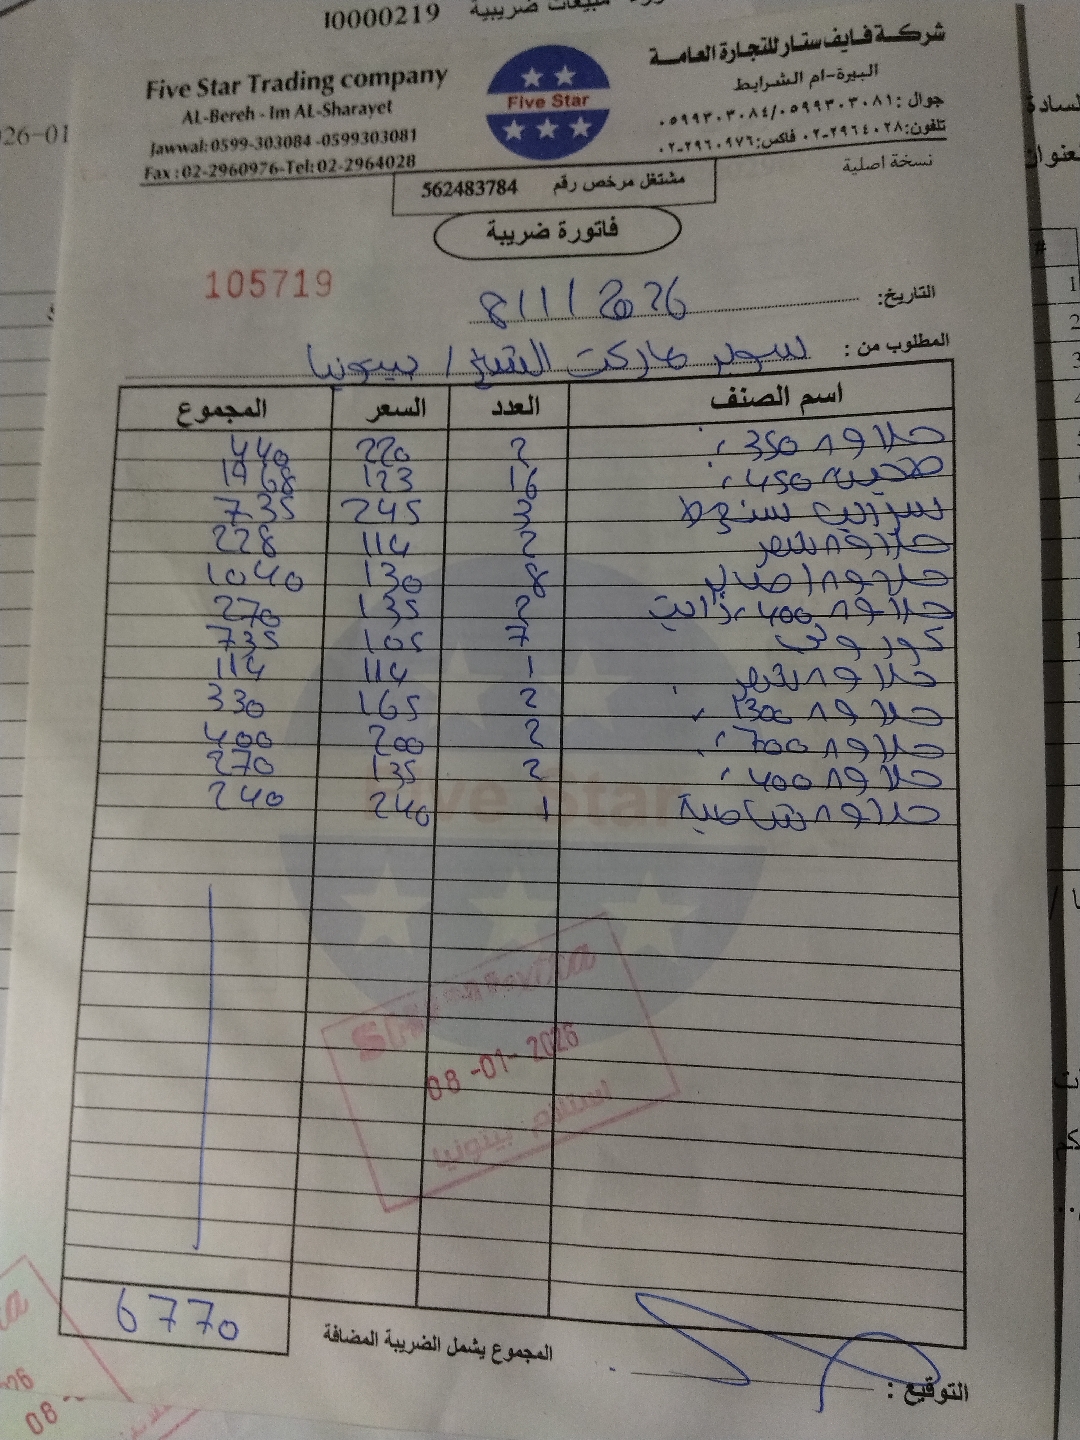 مبيعات ضريبية 10000219
شركة فايف ستار للتجارة العامة
البيرة-ام الشرايط
جوال: ٠٥٩٩٣٠٣٠٨٤/٠٥٩٩٣٠٣٠٨١
تلفون:٠٢-٢٩٦٤٠٢٨ فاكس:٠٢-٢٩٦٠٩٧٦
نسخة اصلية
Five Star
Five Star Trading company
AL-Bereh - Im AL-Sharayet
Jawwal: 0599-303084 -0599303081
Fax : 02-2960976-Tel: 02-2964028
مشتغل مرخص رقم 562483784
فاتورة ضريبة
105719
التاريخ: 8/1/2026
المطلوب من : سوبر ماركت الشني / بيتونيا
اسم الصنف العدد السعر المجموع
حلاوة 350 2 220 440
طحينة 450 16 123 1968
3 245 735
حلاوة شعر 2 114 228
حلاوة 8 130 1040
حلاوة 400 دايت 2 135 270
7 105 735
حلاوة شعر 1 114 114
حلاوة 1300 2 165 330
حلاوة 700 2 200 400
حلاوة 400 2 135 270
حلاوة شامية 1 240 240
Five Star
08 -01- 2026
استلام بيتونيا
6770
المجموع يشمل الضريبة المضافة
التوقيع :